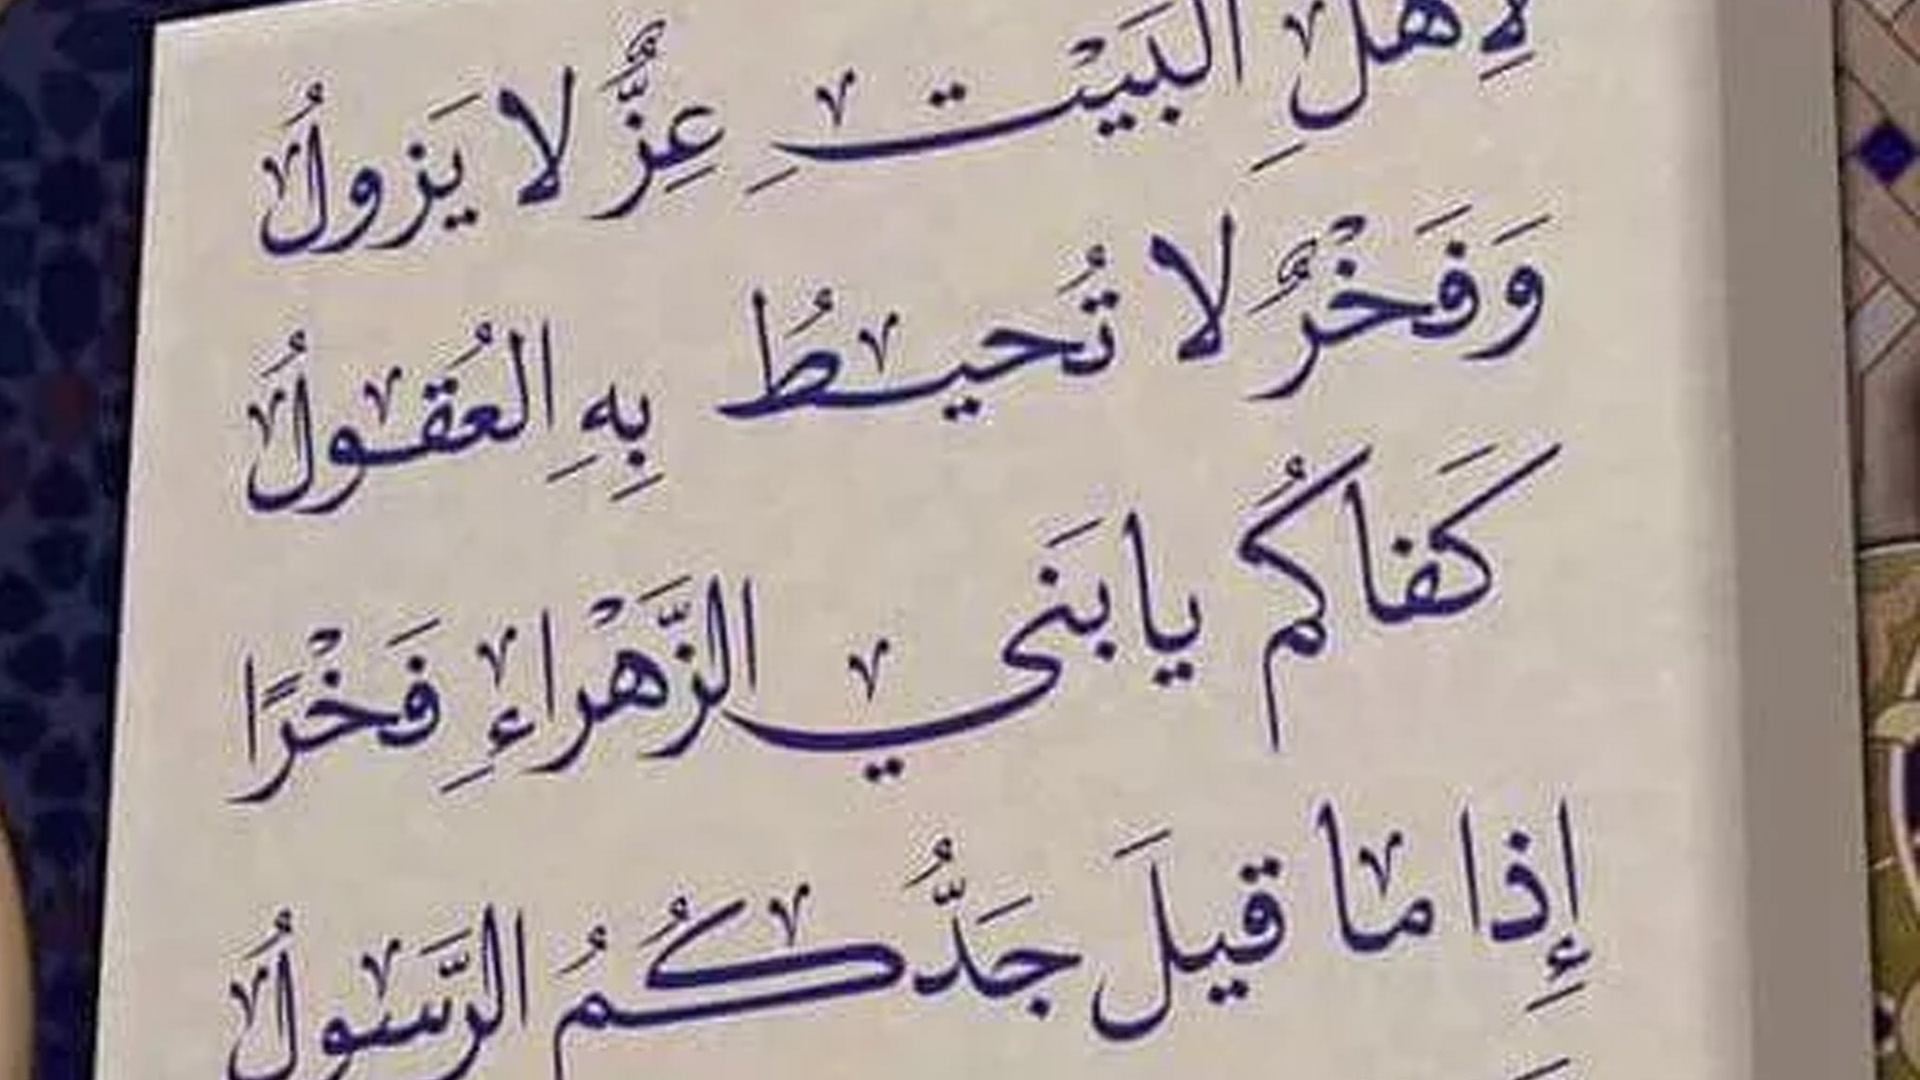 لِاَهلِ البَيْتِ عِزٌّ لا يَزولُ
وَفَخْرٌ لا تُحيطُ بِهِ العُقولُ
كَفاكُم يا بَني الزَّهْراءِ فَخْرًا
إِذا ما قيلَ جَدُّكُمُ الرَّسولُ